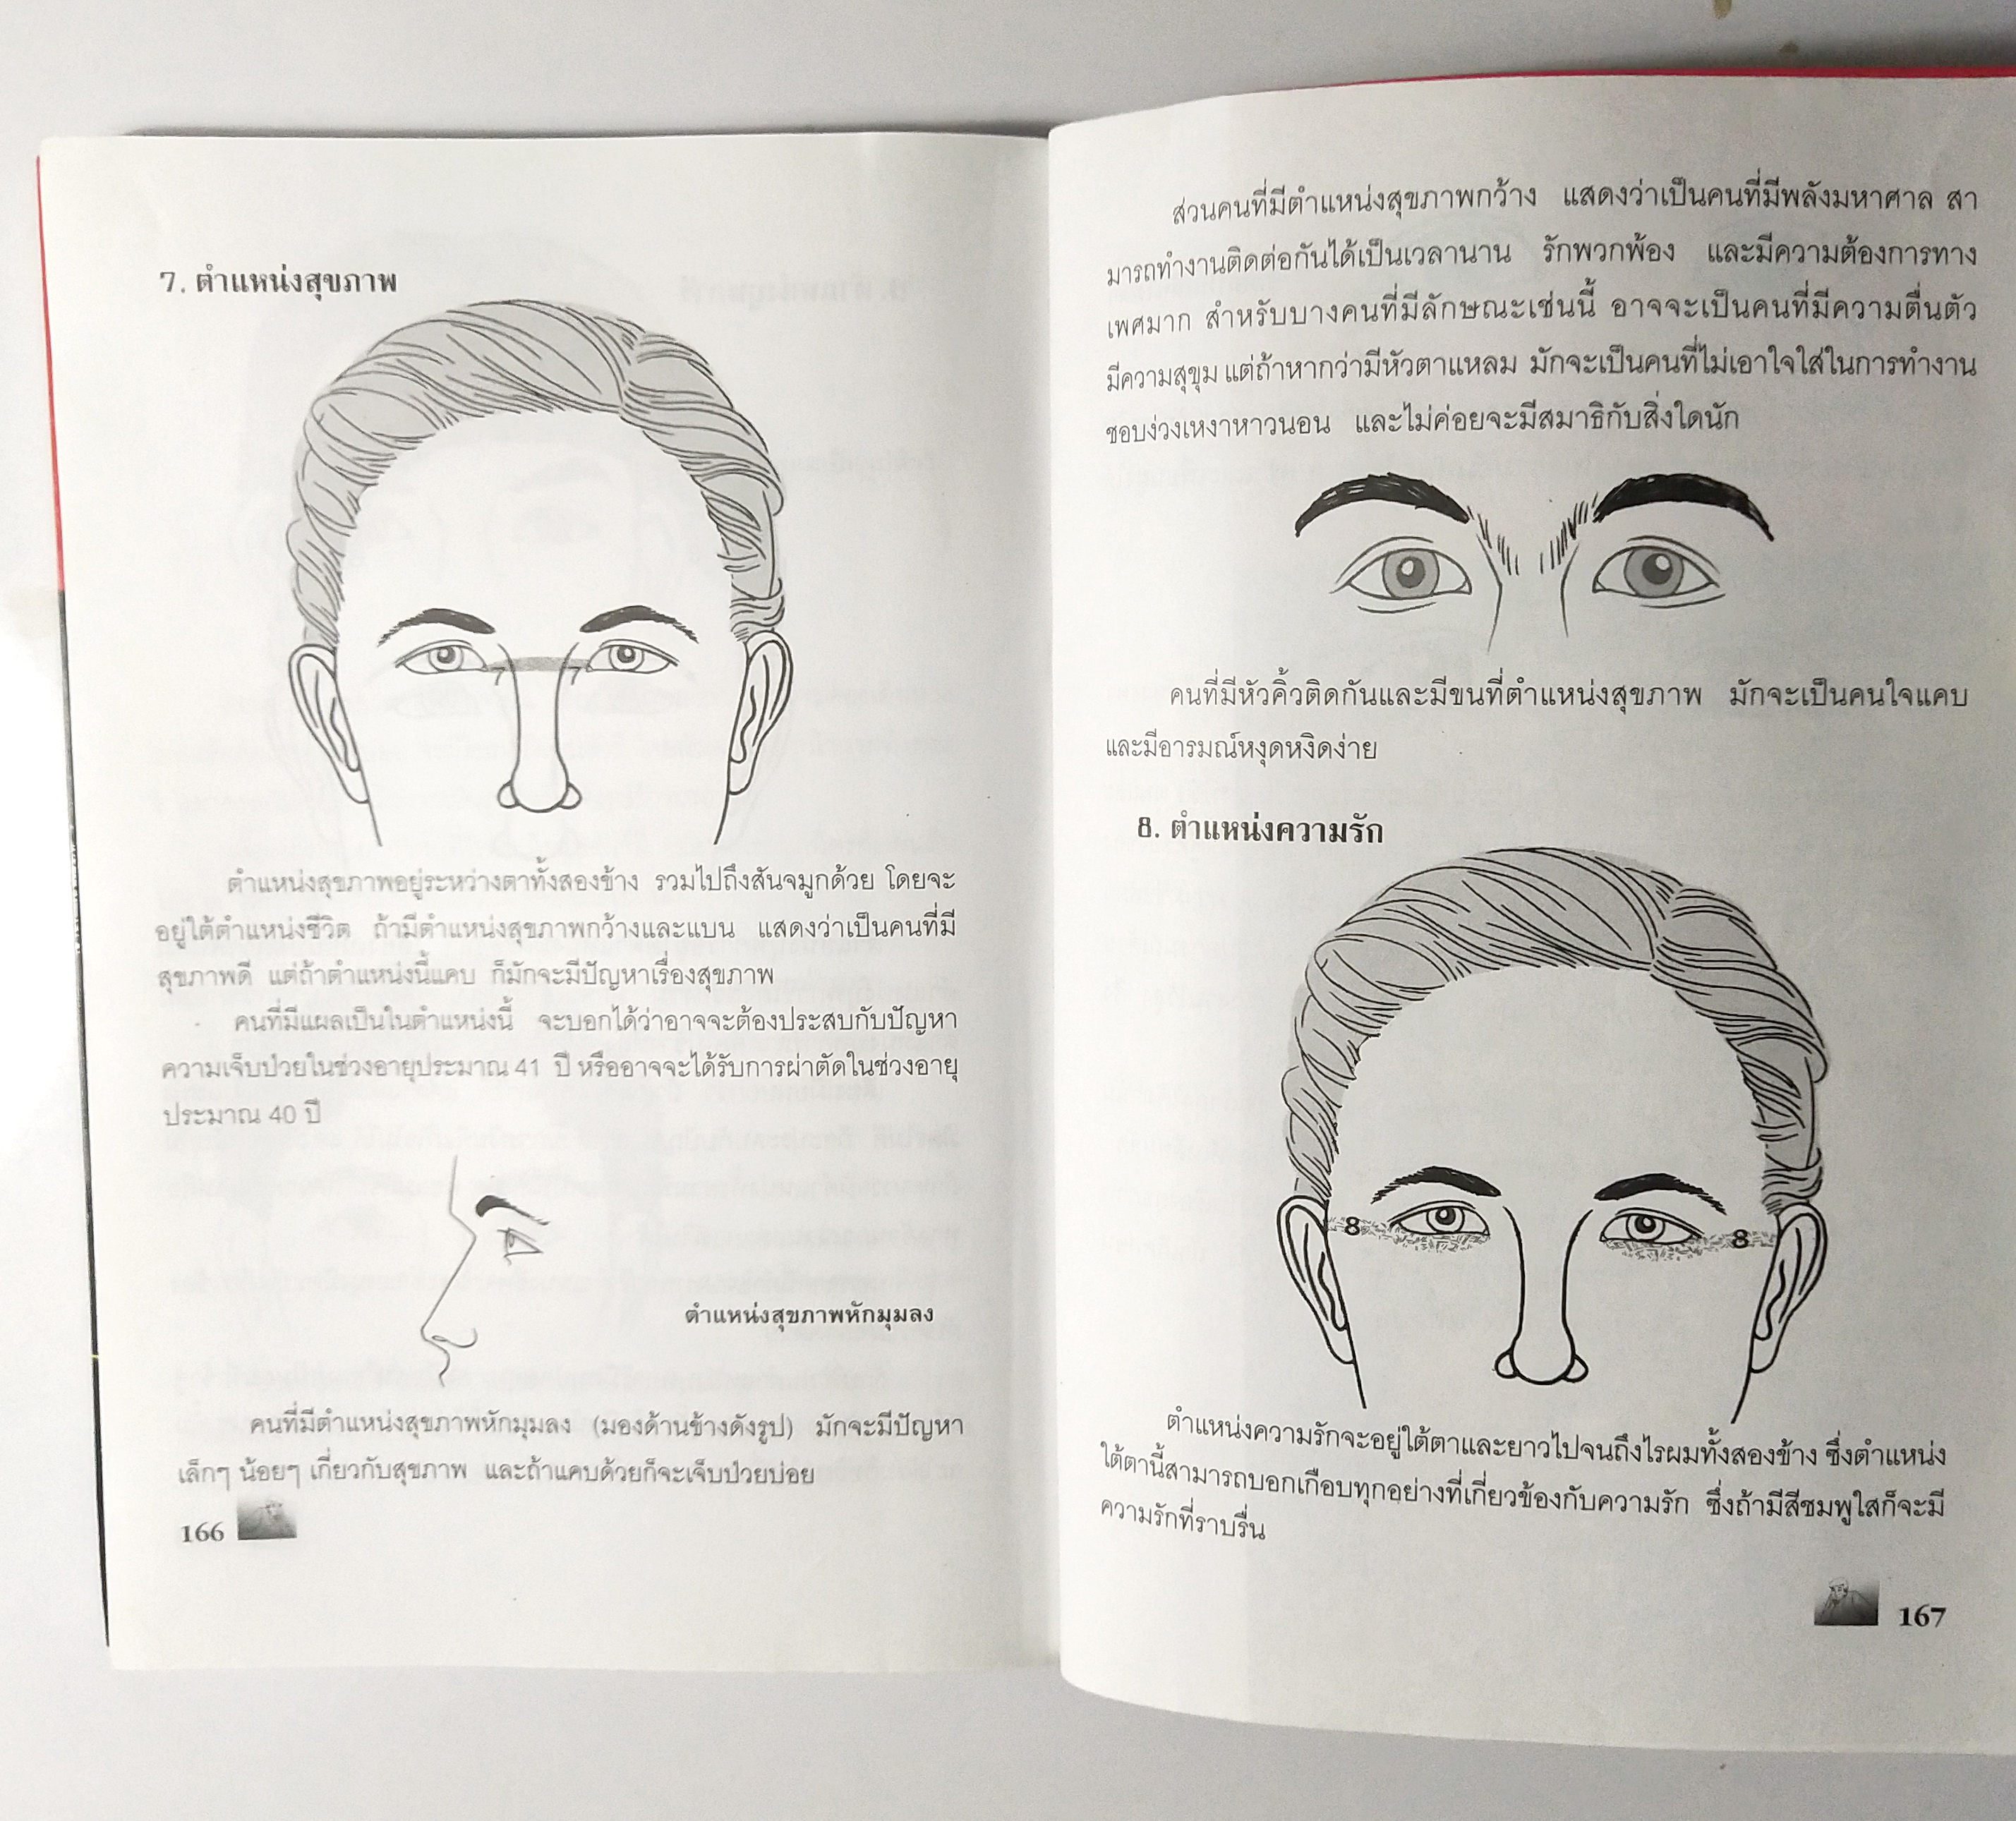 7. ตำแหน่งสุขภาพ
7 7
ตำแหน่งสุขภาพอยู่ระหว่างตาทั้งสองข้าง รวมไปถึงสันจมูกด้วย โดยจะ
อยู่ใต้ตำแหน่งชีวิต ถ้ามีตำแหน่งสุขภาพกว้างและแบน แสดงว่าเป็นคนที่มี
สุขภาพดี แต่ถ้าตำแหน่งนี้แคบ ก็มักจะมีปัญหาเรื่องสุขภาพ
คนที่มีแผลเป็นในตำแหน่งนี้ จะบอกได้ว่าอาจจะต้องประสบกับปัญหา
ความเจ็บป่วยในช่วงอายุประมาณ 41 ปี หรืออาจจะได้รับการผ่าตัดในช่วงอายุ
ประมาณ 40 ปี
ตำแหน่งสุขภาพหักมุมลง
คนที่มีตำแหน่งสุขภาพหักมุมลง (มองด้านข้างดังรูป) มักจะมีปัญหา
เล็กๆ น้อยๆ เกี่ยวกับสุขภาพ และถ้าแคบด้วยก็จะเจ็บป่วยบ่อย
166
ส่วนคนที่มีตำแหน่งสุขภาพกว้าง แสดงว่าเป็นคนที่มีพลังมหาศาล สา
มารถทำงานติดต่อกันได้เป็นเวลานาน รักพวกพ้อง และมีความต้องการทาง
เพศมาก สำหรับบางคนที่มีลักษณะเช่นนี้ อาจจะเป็นคนที่มีความตื่นตัว
มีความสุขุม แต่ถ้าหากว่ามีหัวตาแหลม มักจะเป็นคนที่ไม่เอาใจใส่ในการทำงาน
ชอบง่วงเหงาหาวนอน และไม่ค่อยจะมีสมาธิกับสิ่งใดนัก
คนที่มีหัวคิ้วติดกันและมีขนที่ตำแหน่งสุขภาพ มักจะเป็นคนใจแคบ
และมีอารมณ์หงุดหงิดง่าย
8. ตำแหน่งความรัก
8 8
ตำแหน่งความรักจะอยู่ใต้ตาและยาวไปจนถึงไรผมทั้งสองข้าง ซึ่งตำแหน่ง
ใต้ตานี้สามารถบอกเกือบทุกอย่างที่เกี่ยวข้องกับความรัก ซึ่งถ้ามีสีชมพูใสก็จะมี
ความรักที่ราบรื่น
167